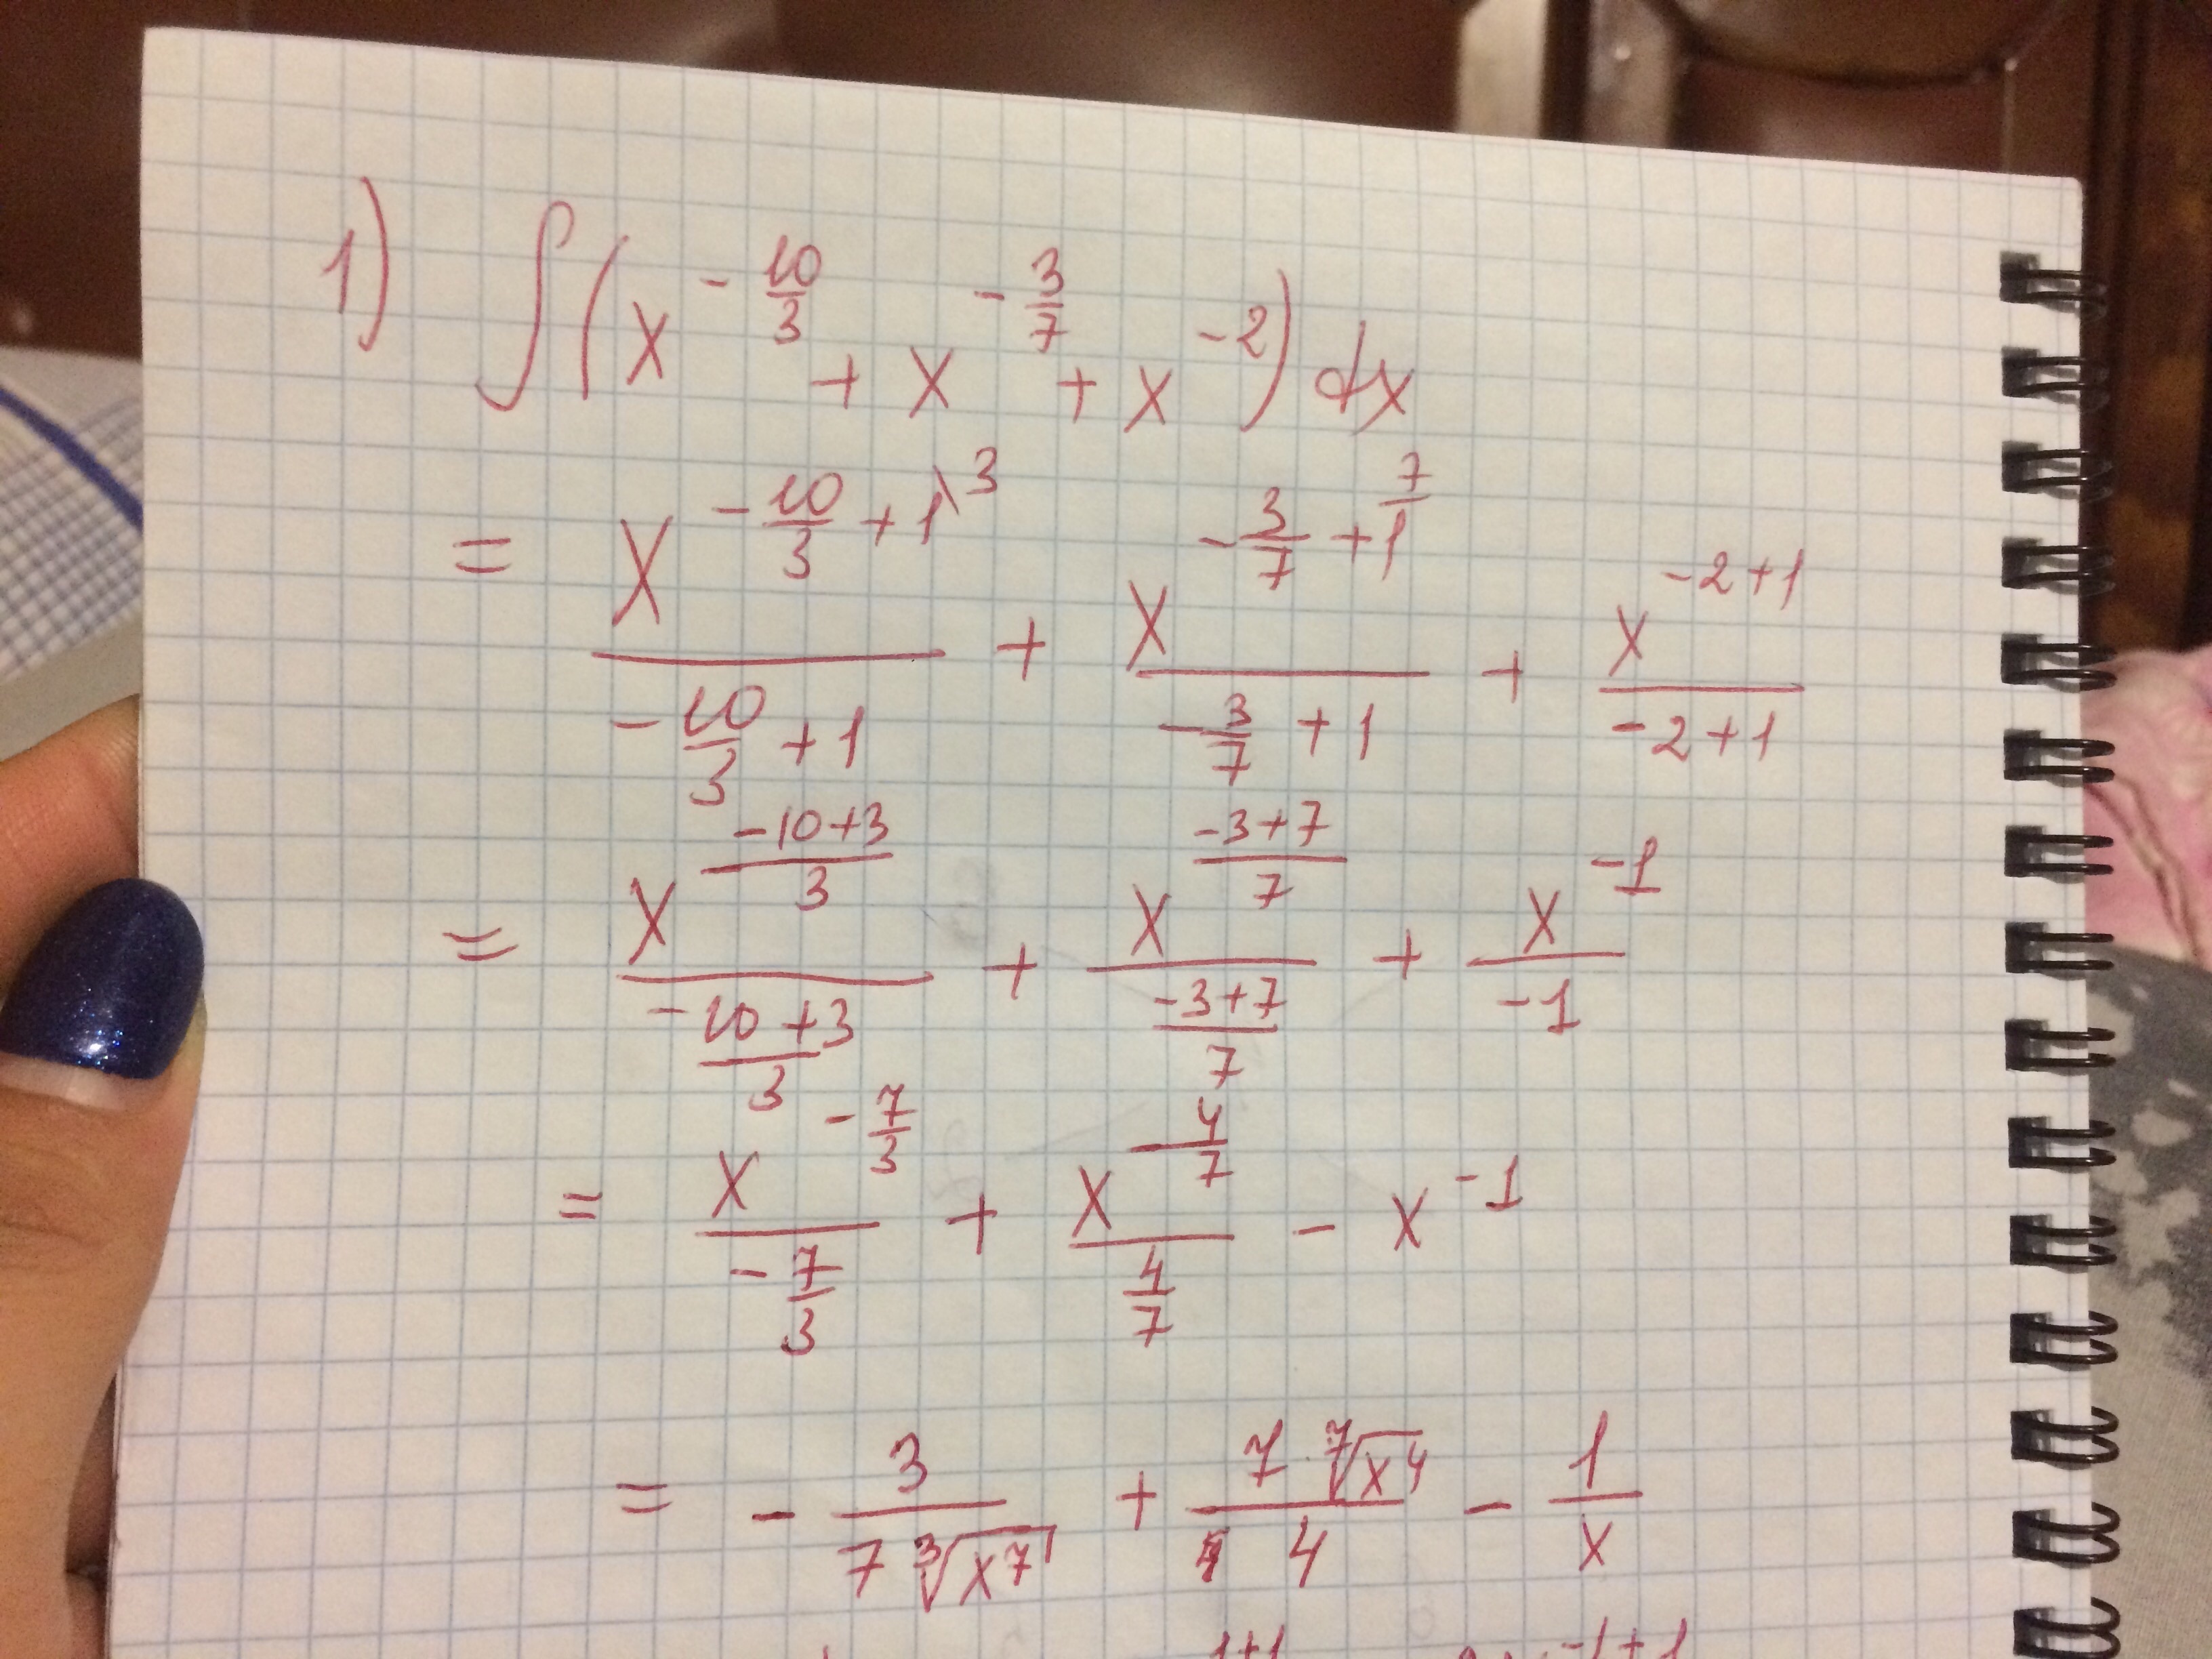 1) ∫ (x^{-\frac{10}{3}} + x^{-\frac{3}{7}} + x^{-2}) dx
= \frac{x^{-\frac{10}{3}+1^{\backslash 3}}}{-\frac{10}{3}+1} + \frac{x^{-\frac{3}{7}+\overset{7}{1}}}{-\frac{3}{7}+1} + \frac{x^{-2+1}}{-2+1}
= \frac{x^{\frac{-10+3}{3}}}{\frac{-10+3}{3}} + \frac{x^{\frac{-3+7}{7}}}{\frac{-3+7}{7}} + \frac{x^{-1}}{-1}
= \frac{x^{-\frac{7}{3}}}{-\frac{7}{3}} + \frac{x^{-\frac{4}{7}}}{\frac{4}{7}} - x^{-1}
= - \frac{3}{7 \sqrt[3]{x^7}} + \frac{7 \sqrt[7]{x^4}}{4} - \frac{1}{x}
1+1 -1+1